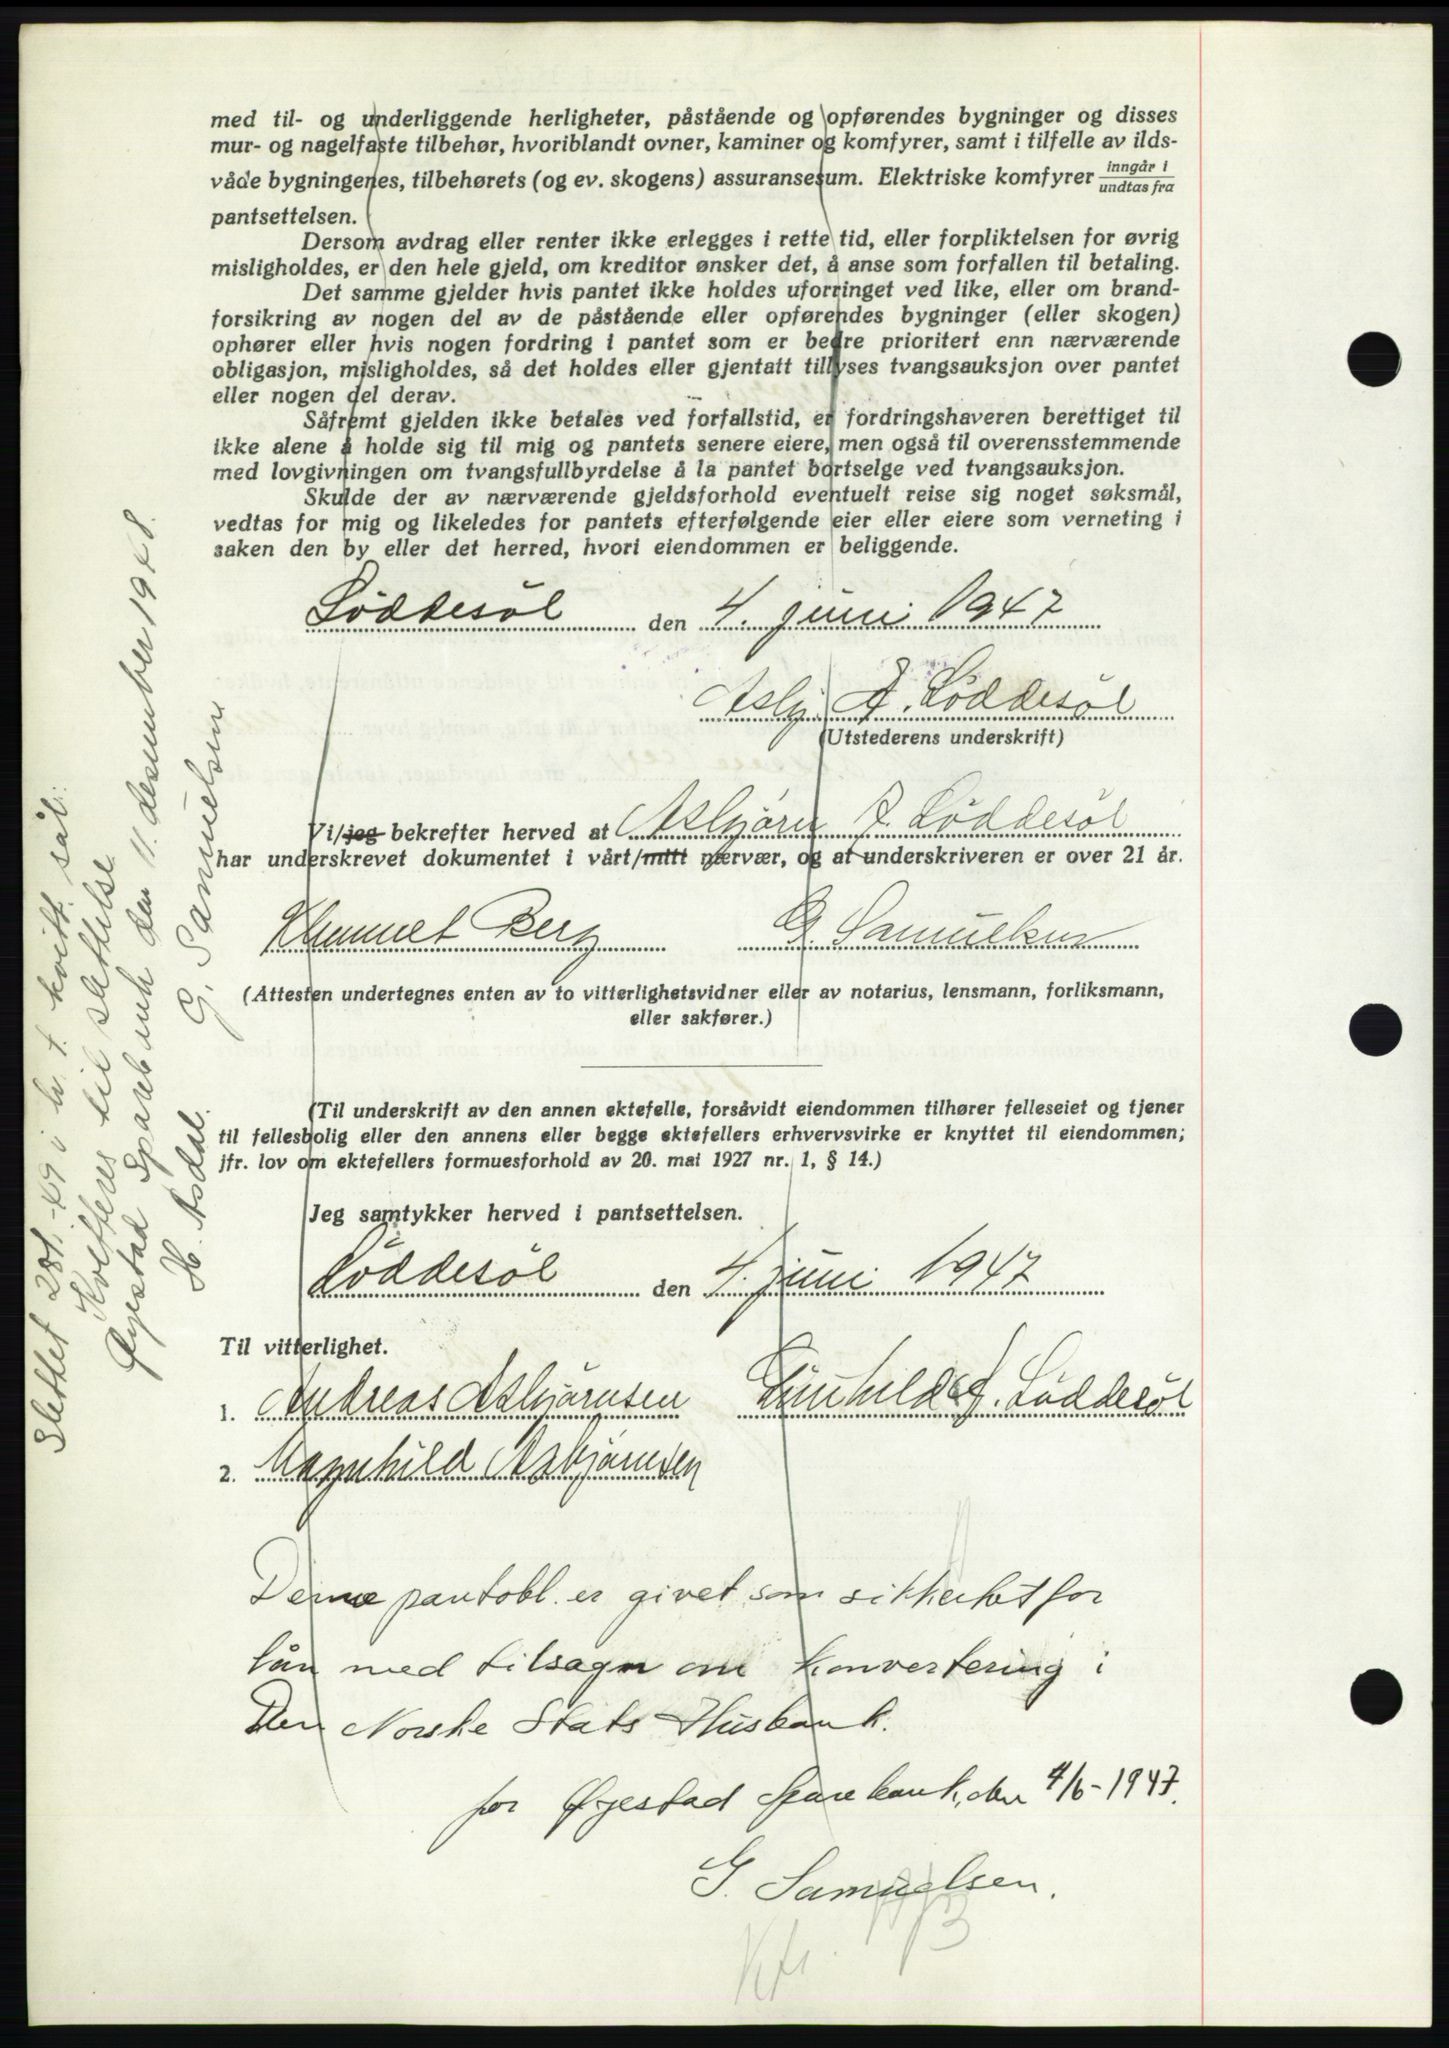 med til- og underliggende herligheter, påstående og opførendes bygninger og disses
mur- og nagelfaste tilbehør, hvoriblandt ovner, kaminer og komfyrer, samt i tilfelle av ilds-
våde bygningenes, tilbehørets (og ev. skogens) assuransesum. Elektriske komfyrer inngår i / undtas fra
pantsettelsen.
Dersom avdrag eller renter ikke erlegges i rette tid, eller forpliktelsen for øvrig
misligholdes, er den hele gjeld, om kreditor ønsker det, å anse som forfallen til betaling.
Det samme gjelder hvis pantet ikke holdes uforringet ved like, eller om brand-
forsikring av nogen del av de påstående eller opførendes bygninger (eller skogen)
ophører eller hvis nogen fordring i pantet som er bedre prioritert enn nærværende
obligasjon, misligholdes, så det holdes eller gjentatt tillyses tvangsauksjon over pantet
eller nogen del derav.
Såfremt gjelden ikke betales ved forfallstid, er fordringshaveren berettiget til
ikke alene å holde sig til mig og pantets senere eiere, men også til overensstemmende
med lovgivningen om tvangsfullbyrdelse å la pantet bortselge ved tvangsauksjon.
Skulde der av nærværende gjeldsforhold eventuelt reise sig noget søksmål,
vedtas for mig og likeledes for pantets efterfølgende eier eller eiere som verneting i
saken den by eller det herred, hvori eiendommen er beliggende.
Løddesøl den 4. juni 1947
Asbj. A. Løddesøl
(Utstederens underskrift)
Vi/jeg bekrefter herved at Asbjørn A. Løddesøl
har underskrevet dokumentet i vårt/mitt nærvær, og at underskriveren er over 21 år.
Klemmet Berg G. Samuelsen
(Attesten undertegnes enten av to vitterlighetsvidner eller av notarius, lensmann, forliksmann,
eller sakfører.)
(Til underskrift av den annen ektefelle, forsåvidt eiendommen tilhører felleseiet og tjener
til fellesbolig eller den annens eller begge ektefellers erhvervsvirke er knyttet til eiendommen;
jfr. lov om ektefellers formuesforhold av 20. mai 1927 nr. 1, § 14.)
Jeg samtykker herved i pantsettelsen.
Løddesøl den 4. juni 1947
Til vitterlighet.
1. Andreas Asbjørnsen Gunhild A. Løddesøl
2. Magnhild Asbjørnsen
Denne pantobl. er givet som sikkerhet for
lån med tilsagn om konvertering i
Den Norske Stats Husbank.
for Øyestad Sparebank, den 4/6-1947.
G. Samuelsen.
Slettet 28/1.-49 i h. t. kvitt. sål.:
Kvitteres til slettelse
Øyestad Sparebank den 11. desember 1948.
H. Asdal. G. Samuelsen